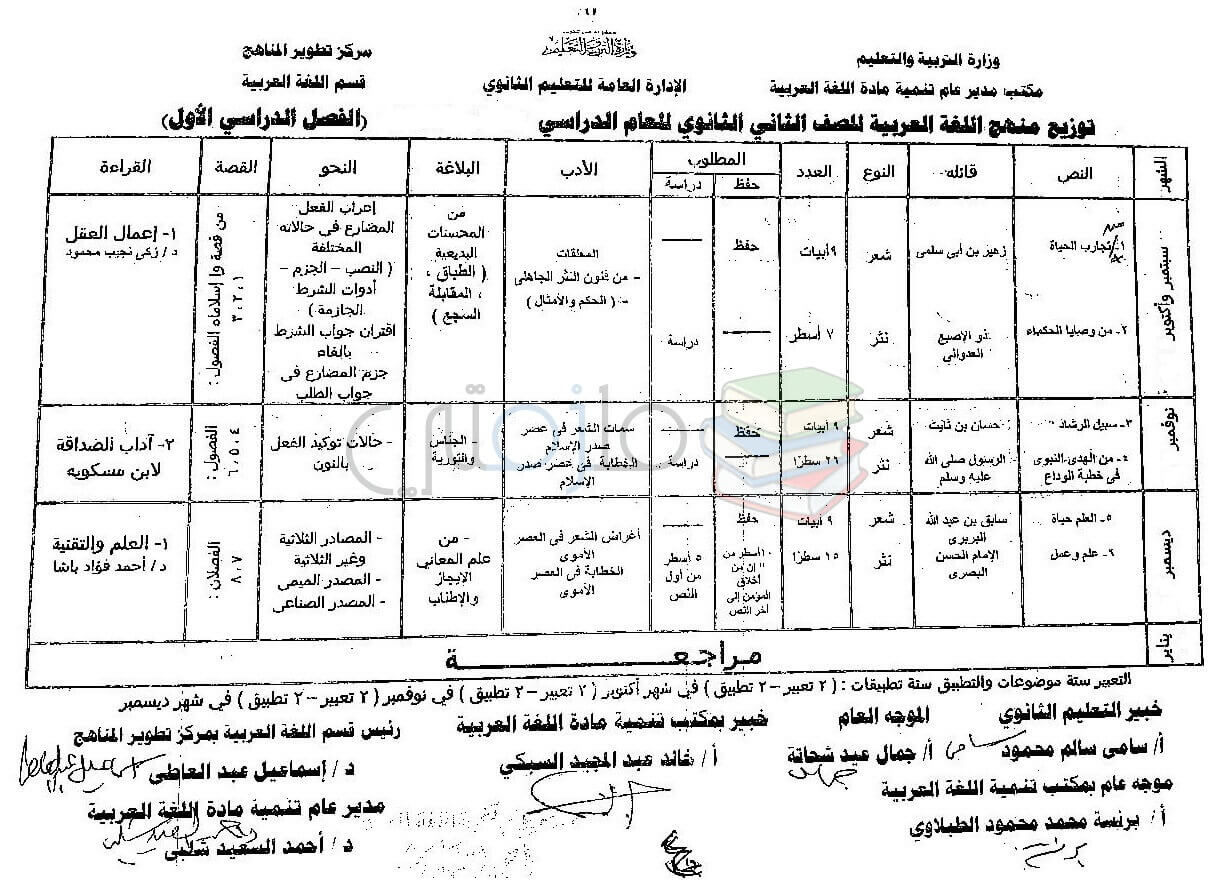 ٦١
وزارة التربية والتعليم
وزارة التربية والتعليم
مركز تطوير المناهج
مكتب مدير عام تنمية مادة اللغة العربية
الإدارة العامة للتعليم الثانوي
قسم اللغة العربية
توزيع منهج اللغة العربية للصف الثاني الثانوي للعام الدراسي
(الفصل الدراسي الأول)
الشهر
النص
قائله
النوع
العدد
المطلوب
حفظ
دراسة
الأدب
البلاغة
النحو
القصة
القراءة
سبتمبر وأكتوبر
١- تجارب الحياة
زهير بن أبى سلمى
شعر
٩ أبيات
حفظ
٢- من وصايا الحكماء
ذو الإصبع
العدواني
نثر
٧ أسطر
دراسة
المعلقات
- من فنون النثر الجاهلى
- ( الحكم والأمثال )
من
المحسنات
البديعية
( الطباق ،
المقابلة ،
السجع )
إعراب الفعل
المضارع فى حالاته
المختلفة
( النصب – الجزم –
أدوات الشرط
الجازمة )
اقتران جواب الشرط
بالفاء
جزم المضارع فى
جواب الطلب
من قصة وا إسلاماه الفصول :
١ ، ٢ ، ٣
١- إعمال العقل
د/ زكى نجيب محمود
نوفمبر
٣- سبيل الرشاد
حسان بن ثابت
شعر
٩ أبيات
حفظ
٤- من الهدى النبوى
فى خطبة الوداع
الرسول صلى الله
عليه وسلم
نثر
٢٦ سطرًا
دراسة
سمات الشعر فى عصر
صدر الإسلام
الخطابة فى عصر صدر
الإسلام
- الجناس
والتورية
- حالات توكيد الفعل
بالنون
الفصول :
٤ ، ٥ ، ٦
٢- آداب الصداقة
لابن مسكويه
ديسمبر
٥- العلم حياة
سابق بن عبد الله
البربرى
شعر
٩ أبيات
حفظ
٦- علم وعمل
الإمام الحسن
البصرى
نثر
١٥ سطرًا
١٠ أسطر من
" إن من
أخلاق
المؤمن إلى
آخر النص
٥ أسطر
من أول
النص
أغراض الشعر فى العصر
الأموى
الخطابة فى العصر
الأموى
- من
علم المعاني
الإيجاز
والإطناب
- المصادر الثلاثية
وغير الثلاثية
- المصدر الميمى
- المصدر الصناعى
الفصلان :
٧ ، ٨
١- العلم والتقنية
د/ أحمد فؤاد باشا
يناير
مراجعة
ملازمتي
التعبير ستة موضوعات والتطبيق ستة تطبيقات : ( ٢ تعبير – ٢ تطبيق ) في شهر أكتوبر ( ٢ تعبير – ٢ تطبيق ) في نوفمبر ( ٢ تعبير – ٢ تطبيق ) في شهر ديسمبر
خبير التعليم الثانوي
الموجه العام
خبير بمكتب تنمية مادة اللغة العربية
رئيس قسم اللغة العربية بمركز تطوير المناهج
أ/ سامى سالم محمود
أ/ جمال عيد شحاتة
أ/ خالد عبد المجيد السبكي
د/ إسماعيل عبد العاطى
موجه عام بمكتب تنمية اللغة العربية
مدير عام تنمية مادة اللغة العربية
أ/ برنسة محمد محمود الطبلاوي
د/ أحمد السعيد شلبى